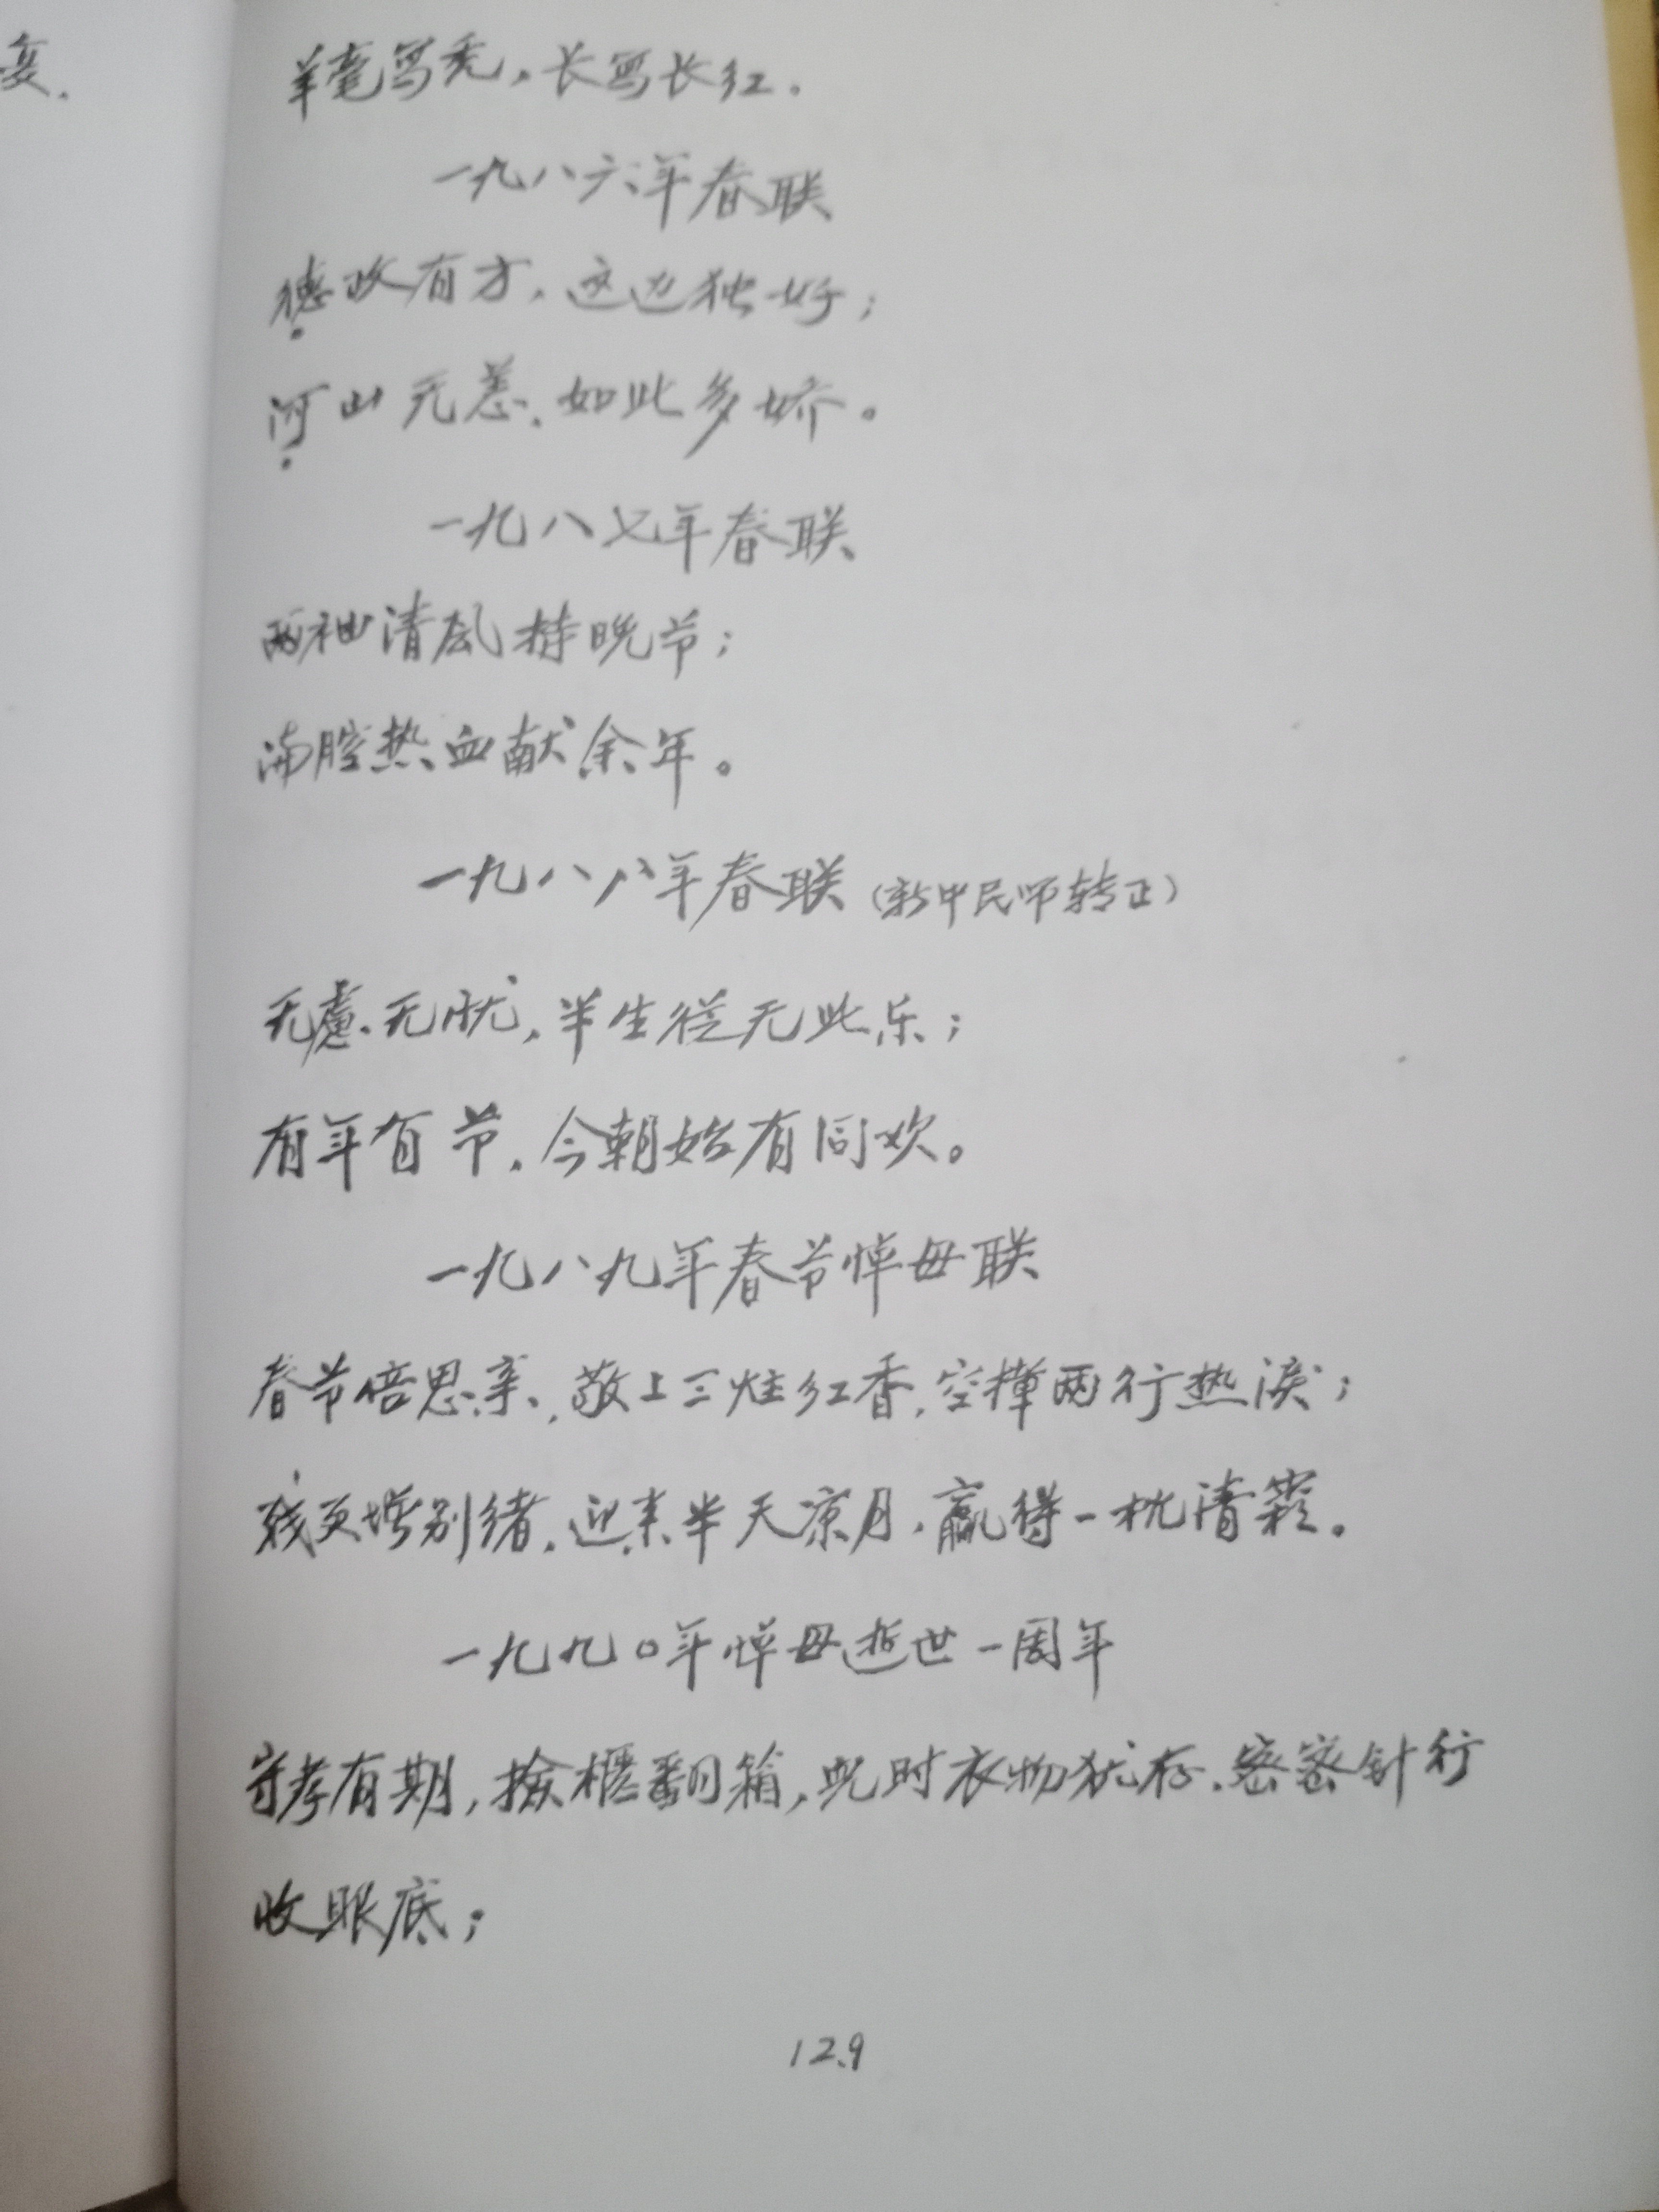 羊毫写秃，长写长红。
一九八六年春联
德政有方，这边独好；
河山无恙，如此多娇。
一九八七年春联
两袖清风持晚节；
满腔热血献余年。
一九八八年春联（新中民师转正）
无虑无忧，半生从无此乐；
有年有节，今朝始有同欢。
一九八九年春节悼母联
春节倍思亲，敬上三炷红香，空掸两行热泪；
残更增别绪，迎来半天凉月，赢得一枕清霜。
一九九〇年悼母逝世一周年
守孝有期，捡柜翻箱，此时衣物犹存，密密针行
收眼底；
129